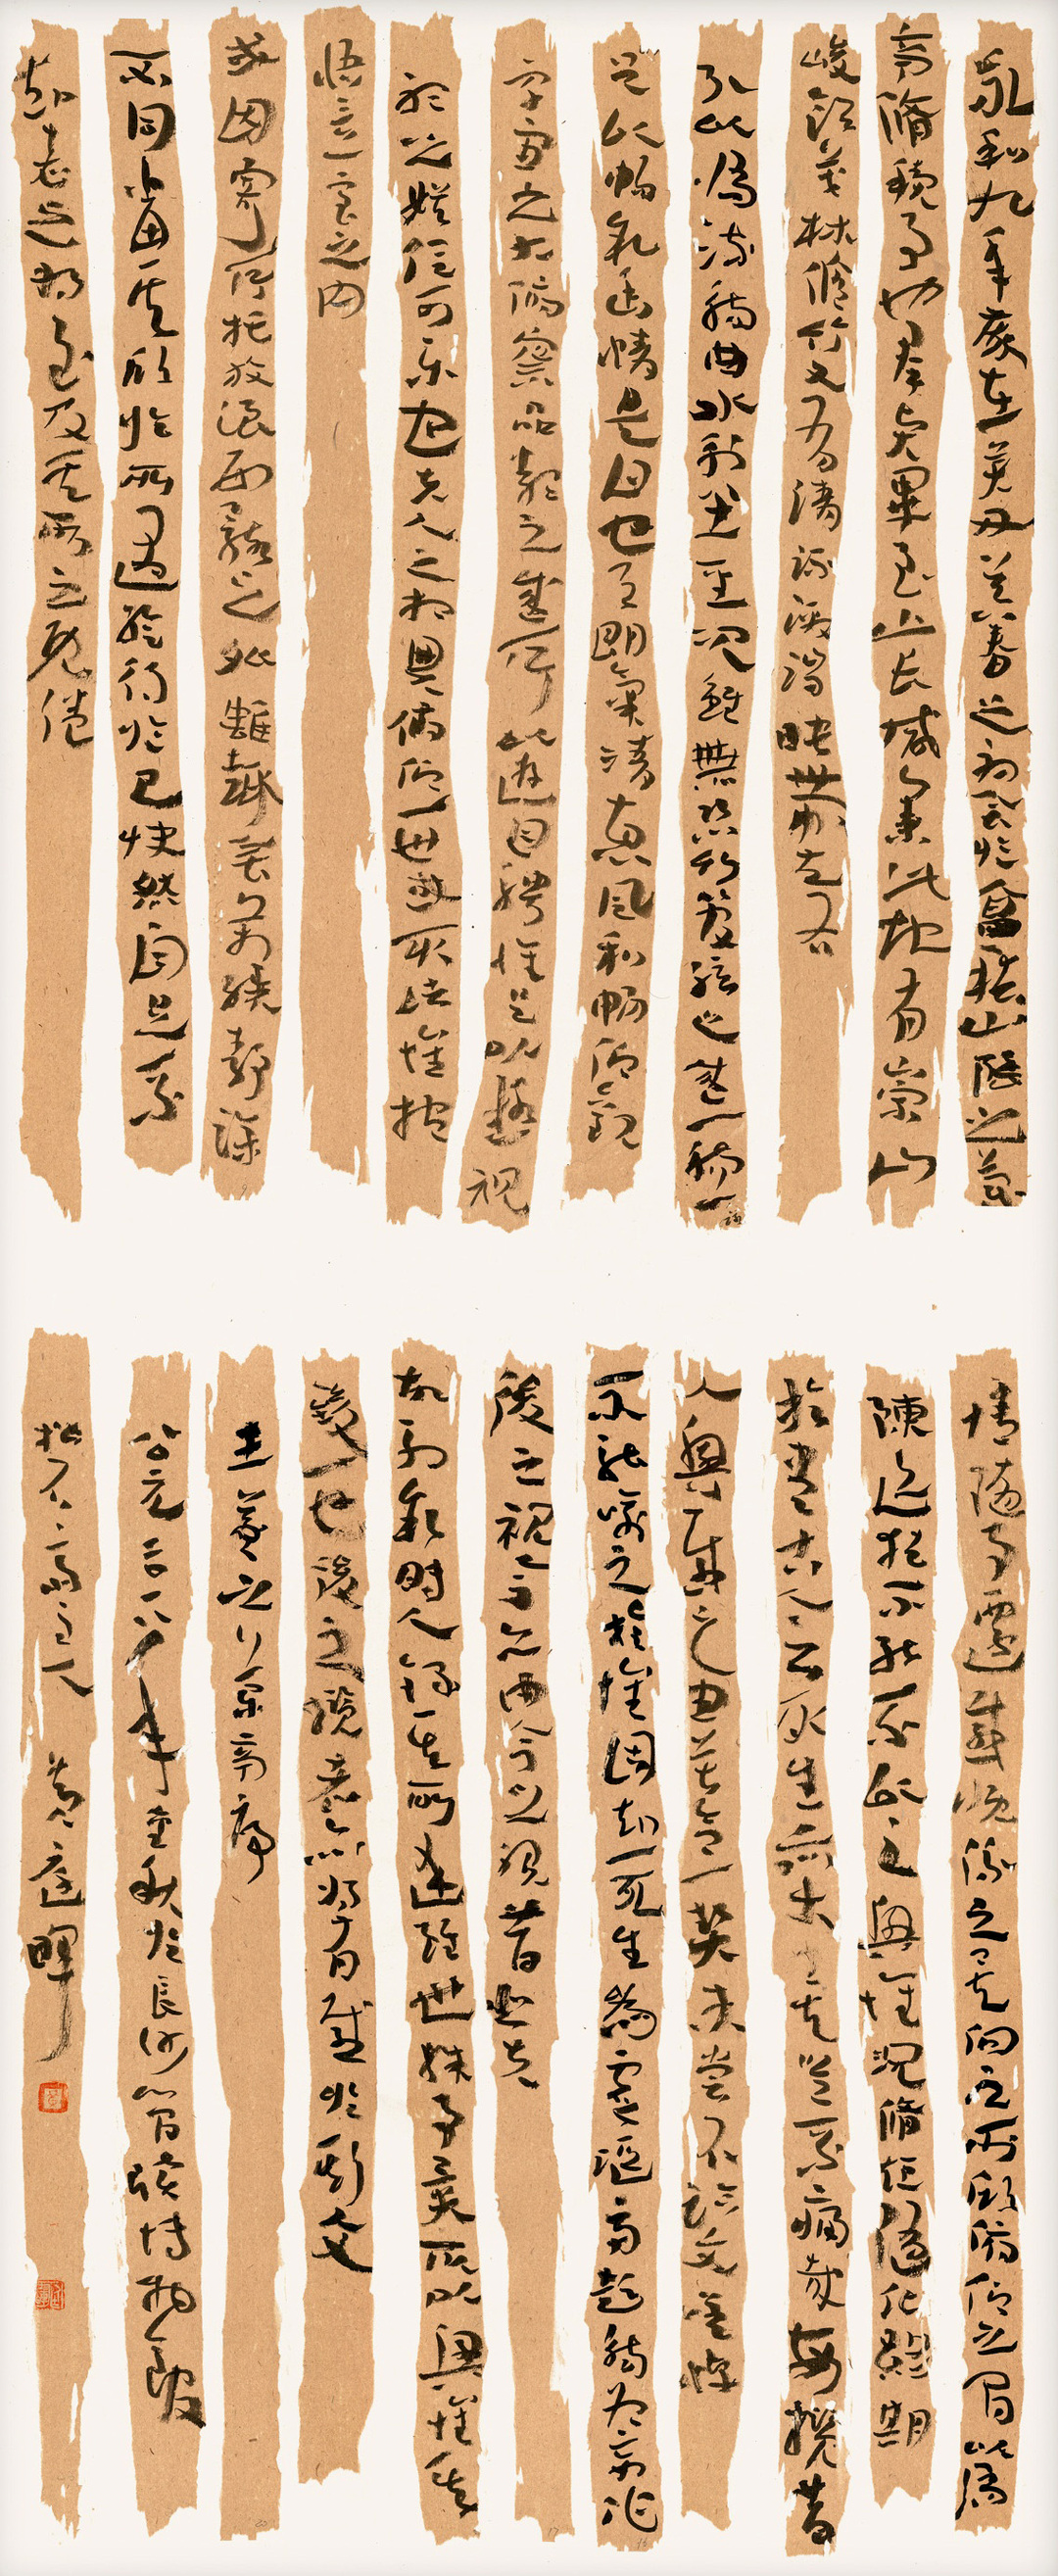 永和九年歲在癸丑暮春之初會於會稽山陰之蘭
亭脩稧事也羣賢畢至少長咸集此地有崇山
峻領茂林脩竹又有清流激湍暎帶左右
引以為流觴曲水列坐其次雖無絲竹管弦之盛一觴一詠
足以暢敘幽情是日也天朗氣清惠風和暢仰觀
宇宙之大俯察品類之盛所以遊目騁懷足以極視
聽之娛信可樂也夫人之相與俯仰一世或取諸懷抱
悟言一室之內
或因寄所託放浪形骸之外雖趣舍萬殊靜躁
不同當其欣於所遇蹔得於己快然自足不
知老之將至及其所之既惓
情隨事遷感慨係之矣向之所欣俛仰之間以為
陳迹猶不能不以之興懷況脩短隨化終期
於盡古人云死生亦大矣豈不痛哉每攬昔
人興感之由若合一契未嘗不臨文嗟悼
不能喻之於懷固知一死生為虛誕齊彭殤為妄作
後之視今亦由今之視昔悲夫
故列敘時人錄其所述雖世殊事異所以興懷其
致一也後之攬者亦將有感於斯文
王羲之蘭亭序
公元二〇一八年秋於長沙簡牘博物館
齋主人 黃庭暉